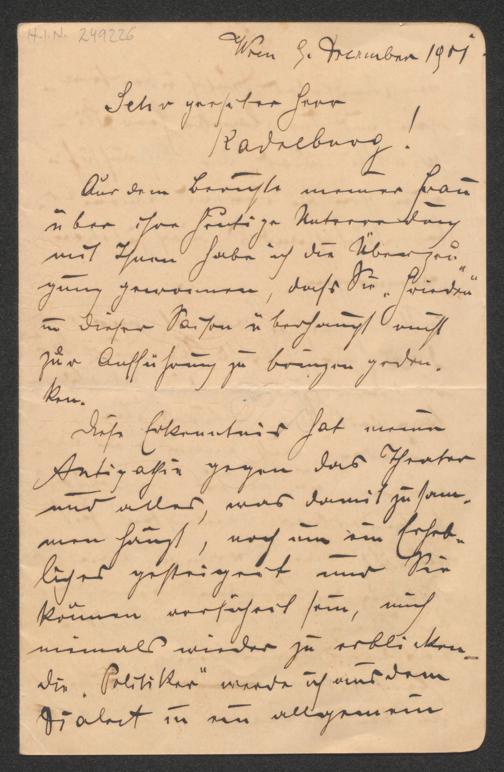 H.I.N. 249226
Wien 9. Dezember 1901
Sehr geehrter Herr
Kadelburg!
Aus dem Berichte meiner Frau
über ihre heutige Unterredung
mit Ihnen habe ich die Überzeu
gung gewonnen, dass Sie „Frieden"
in dieser Saison überhaupt nicht
zur Aufführung zu bringen geden-
ken.
Diese Erkenntnis hat meine
Antipathie gegen das Theater
und alles, was damit zusam-
men hängt, noch um ein Erheb-
liches gesteigert und Sie
können versichert sein, mich
niemals wieder zu erblicken.
Die „Politiker" werde ich aus dem
Dialect in ein allgemein